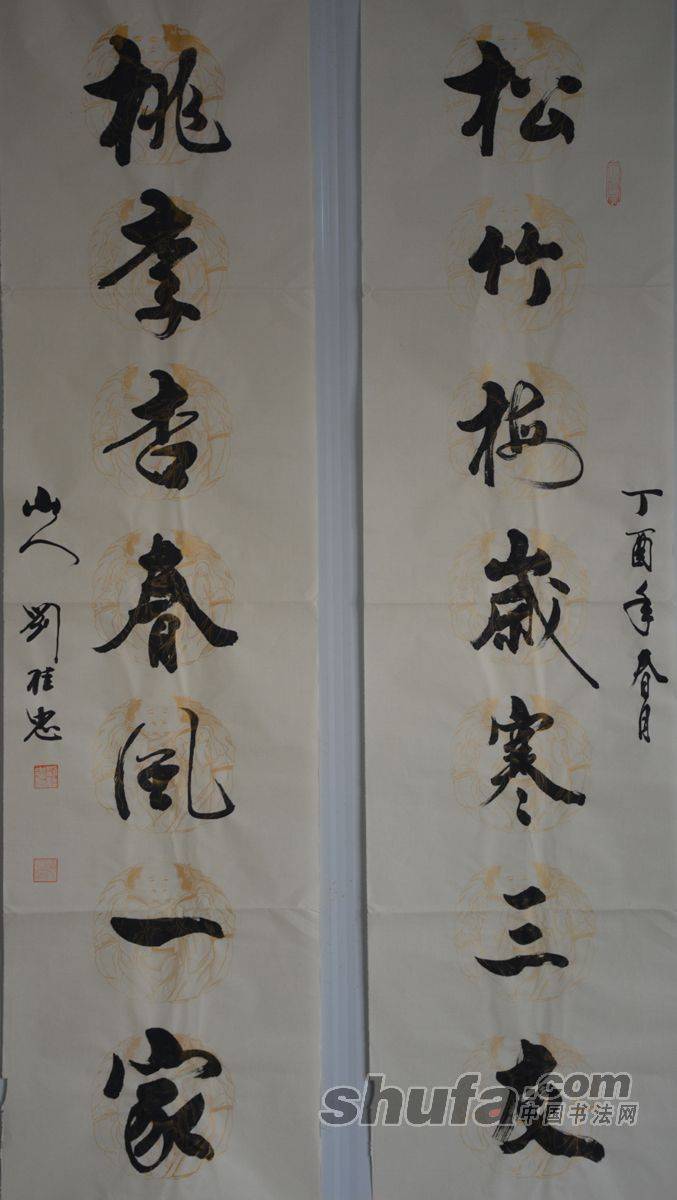 丁酉年春月
松竹梅歲寒三友
桃李杏春風一家
山人劉桂忠
shufa.com
中国书法网